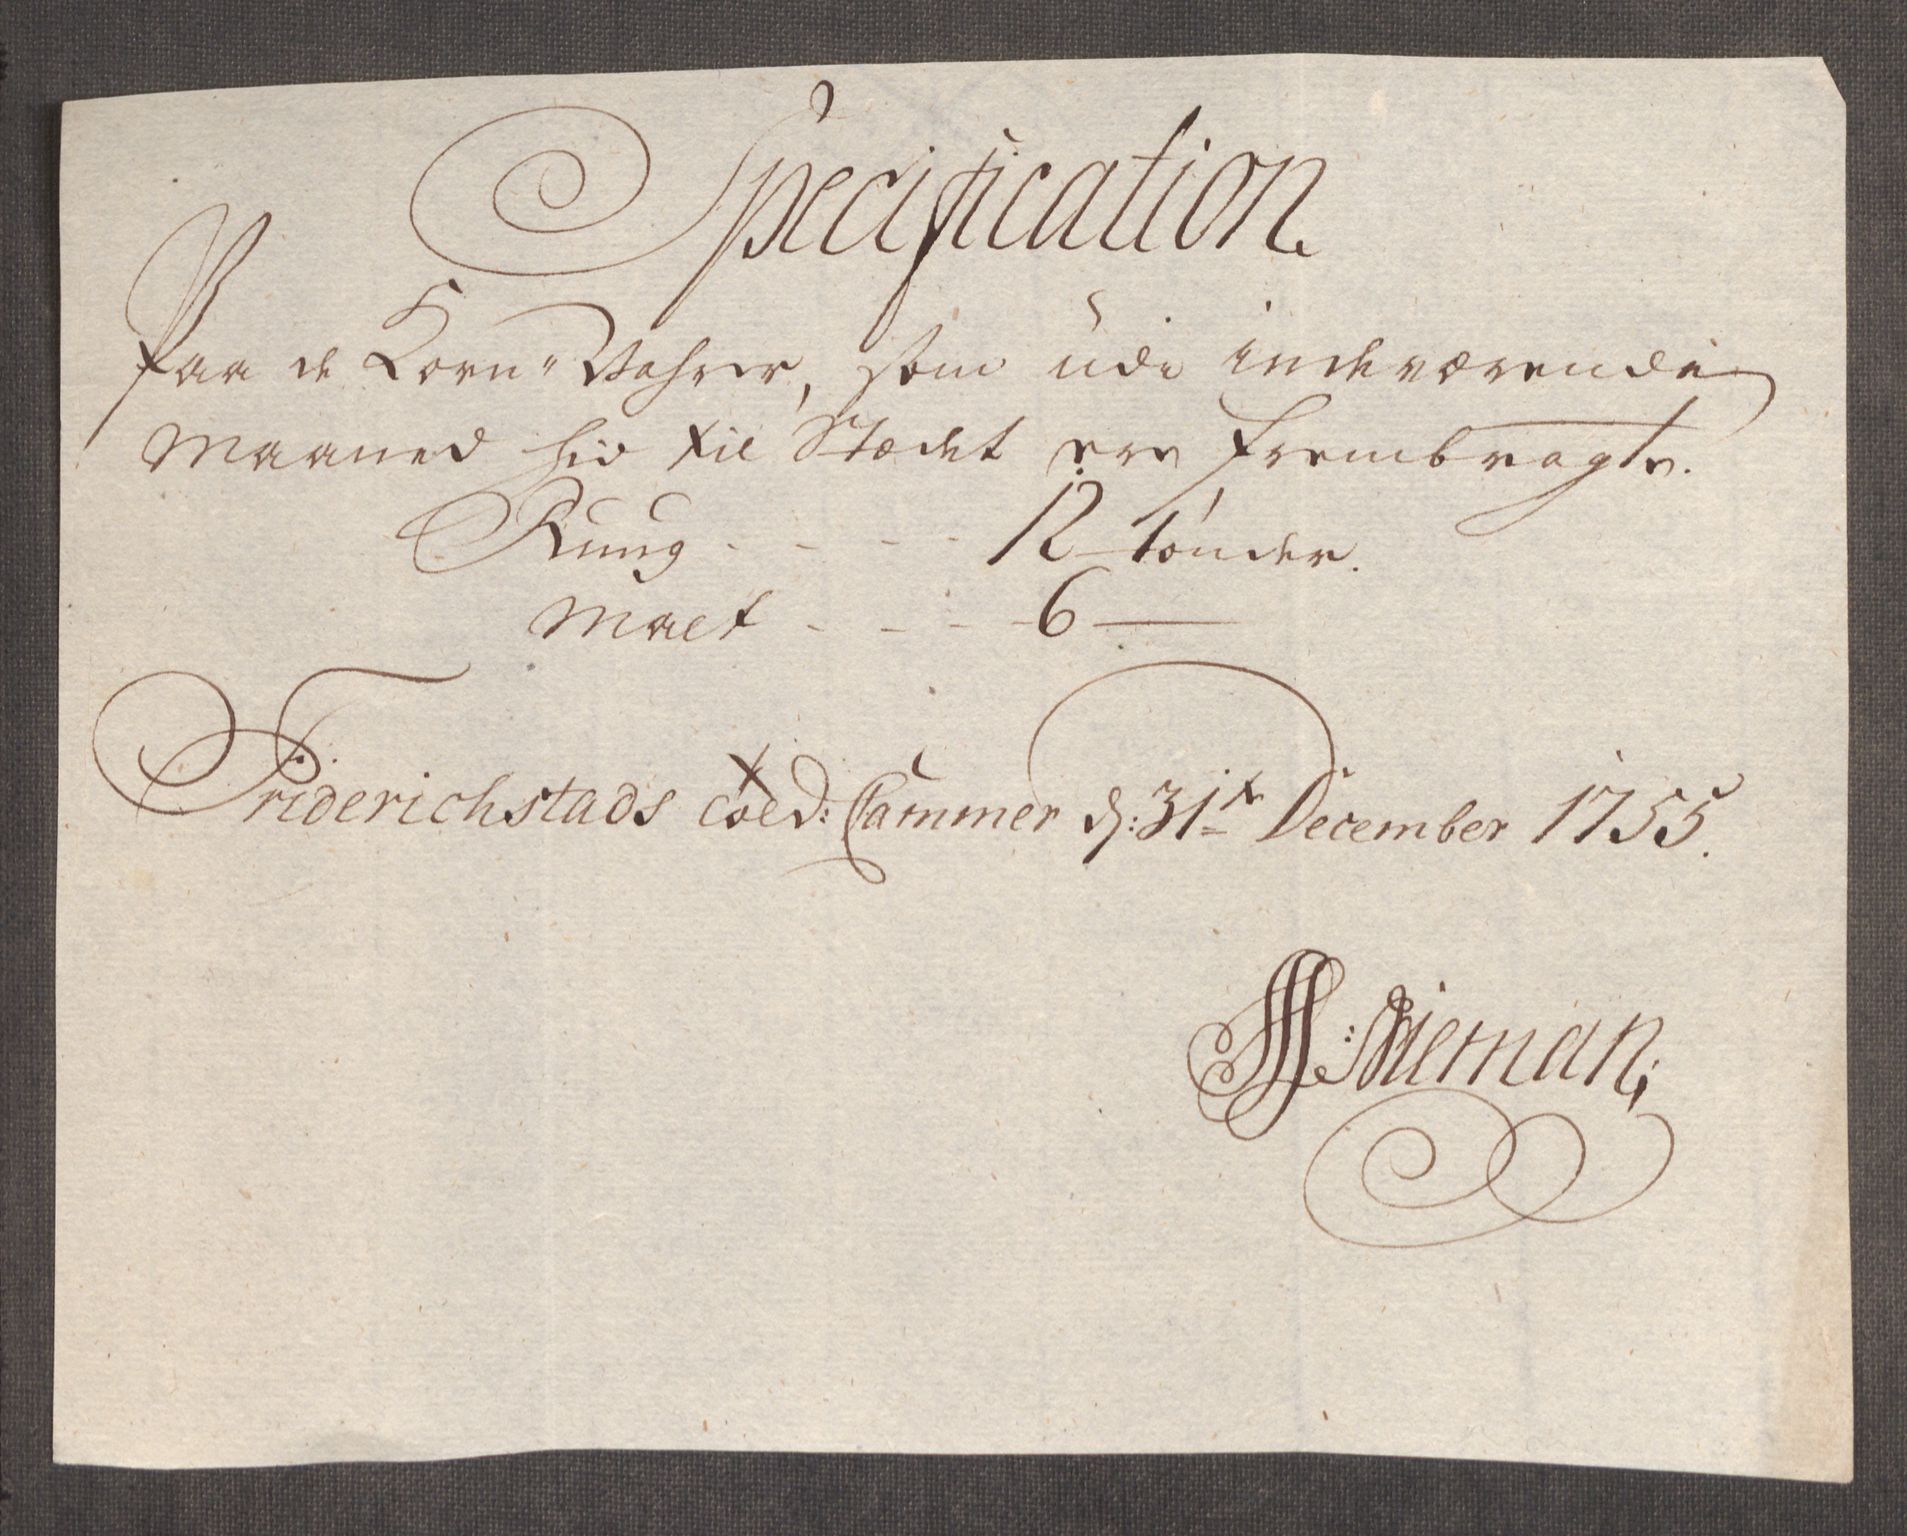 Specification
Paa de Korn-Vahrer, som udi indeværende
Maaned hid til Stædet ere frembragte.
Rug - - - - 12 tönder.
Malt - - - - 6 —
Friderichstads told: Cammer d: 31te December 1755.